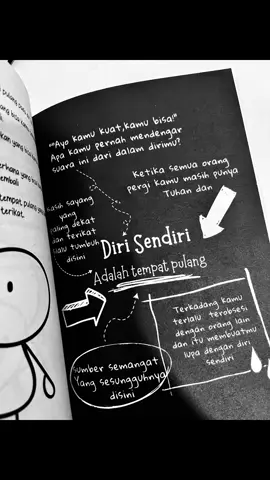 ""Ayo kamu kuat,kamu bisa!"
Apa kamu pernah mendengar
suara ini dari dalam dirimu?
Ketika semua orang
pergi kamu masih punya
Tuhan dan
kasih sayang
yang
paling dekat
dan terikat
lalu tumbuh
disini
Diri Sendiri
Adalah tempat pulang
Terkadang kamu
terlalu terobsesi
dengan orang lain
dan itu membuatmu
lupa dengan diri
sendiri
sumber semangat
Yang sesungguhnya
disini
tempat pulang
terikat.